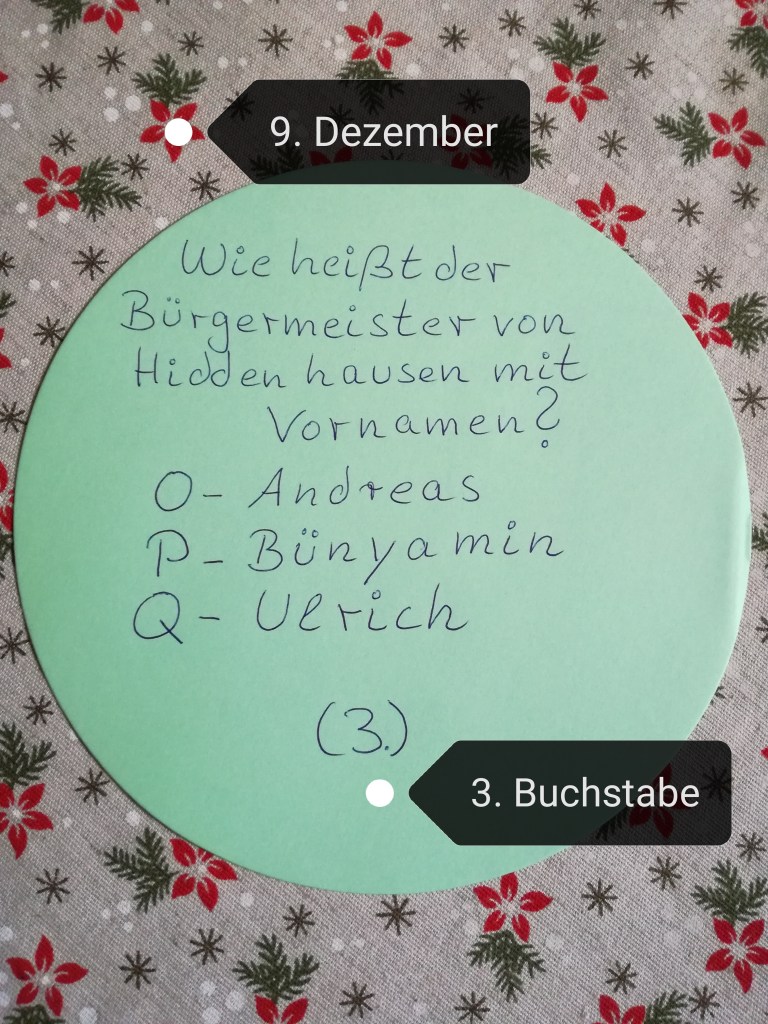 9. Dezember
Wie heißt der
Bürgermeister von
Hiddenhausen mit
Vornamen?
O- Andreas
P- Bünyamin
Q- Ulrich
(3.)
3. Buchstabe